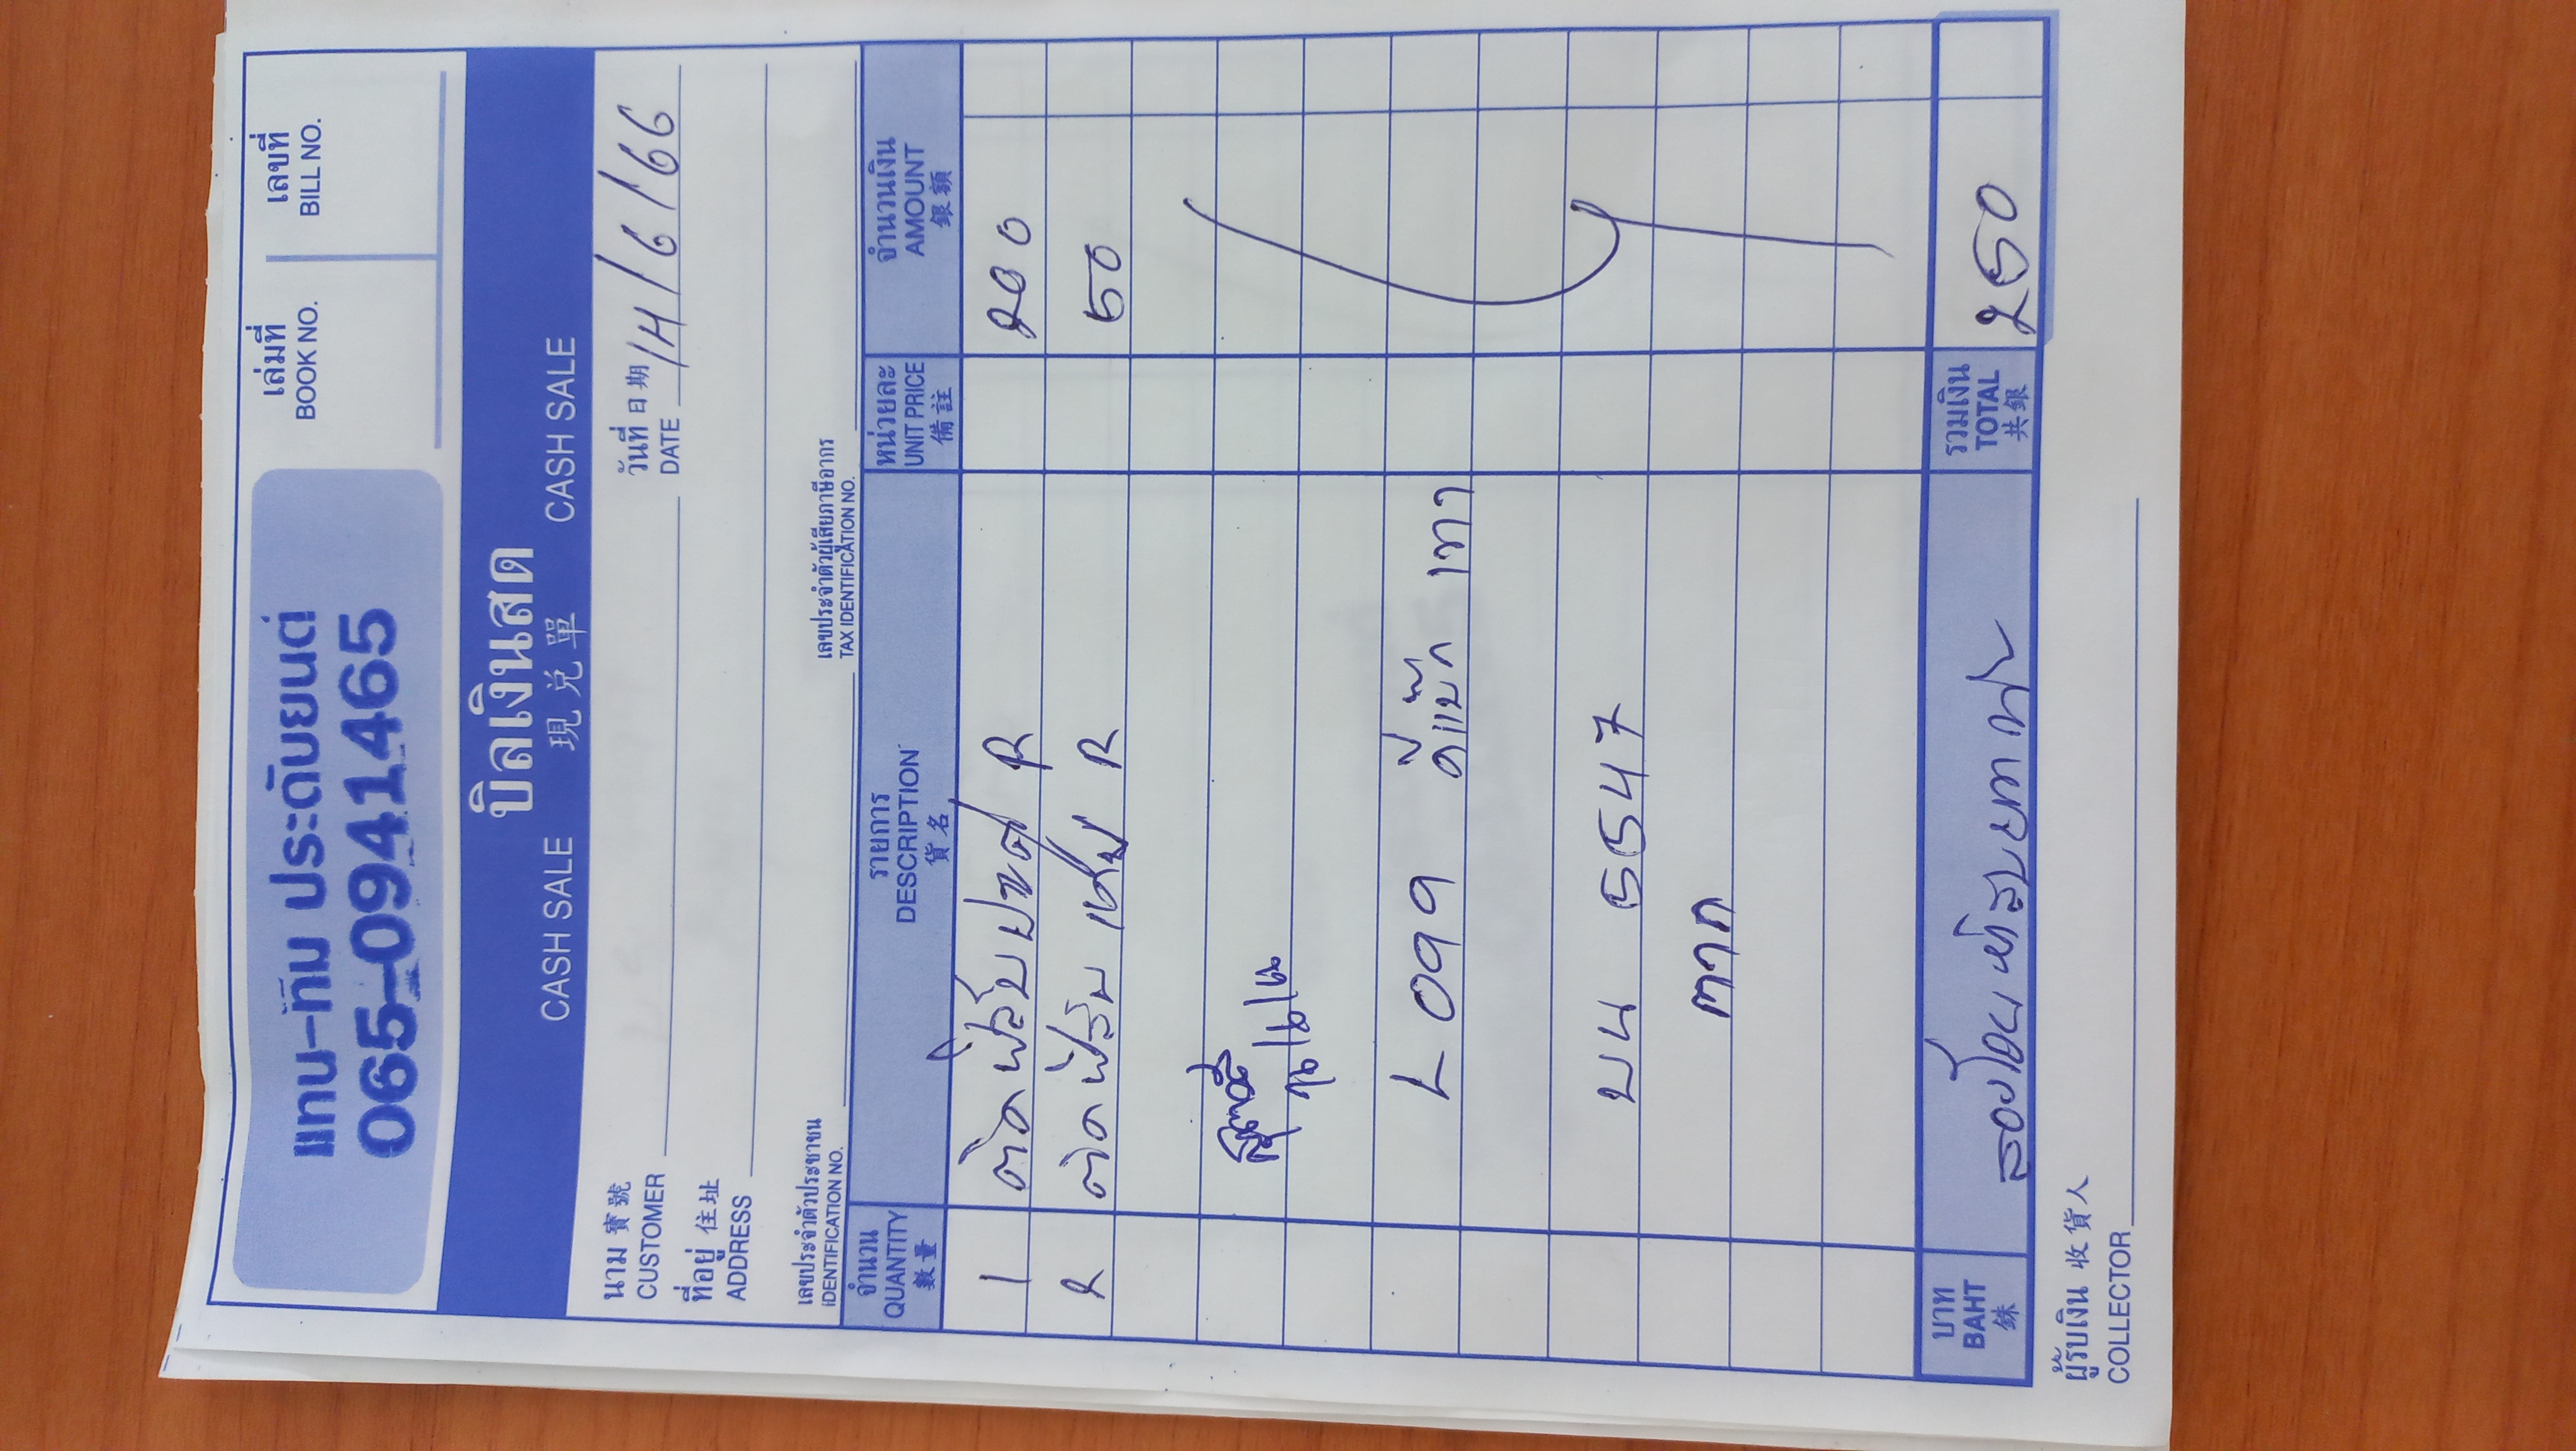 แทน-ทิม ประดับยนต์
065-0941465
เล่มที่ เลขที่
BOOK NO. BILL NO.
บิลเงินสด
CASH SALE 現兌單 CASH SALE
นาม 寶號 วันที่ 日期
CUSTOMER DATE 14/6/66
ที่อยู่ 住址
ADDRESS
เลขประจำตัวประชาชน เลขประจำตัวผู้เสียภาษีอากร
IDENTIFICATION NO. TAX IDENTIFICATION NO.
จำนวน รายการ หน่วยละ จำนวนเงิน
QUANTITY DESCRIPTION UNIT PRICE AMOUNT
數量 貨名 備註 銀額
1 ติดฟิล์ม R 200
2 ติดฟิล์ม R 50
L 099 ดีแม๊ก เทา
บน 5547
ตาก
บาท รวมเงิน
BAHT สองร้อยห้าสิบบาท TOTAL 250
銖 共銀
ผู้รับเงิน 收貨人
COLLECTOR